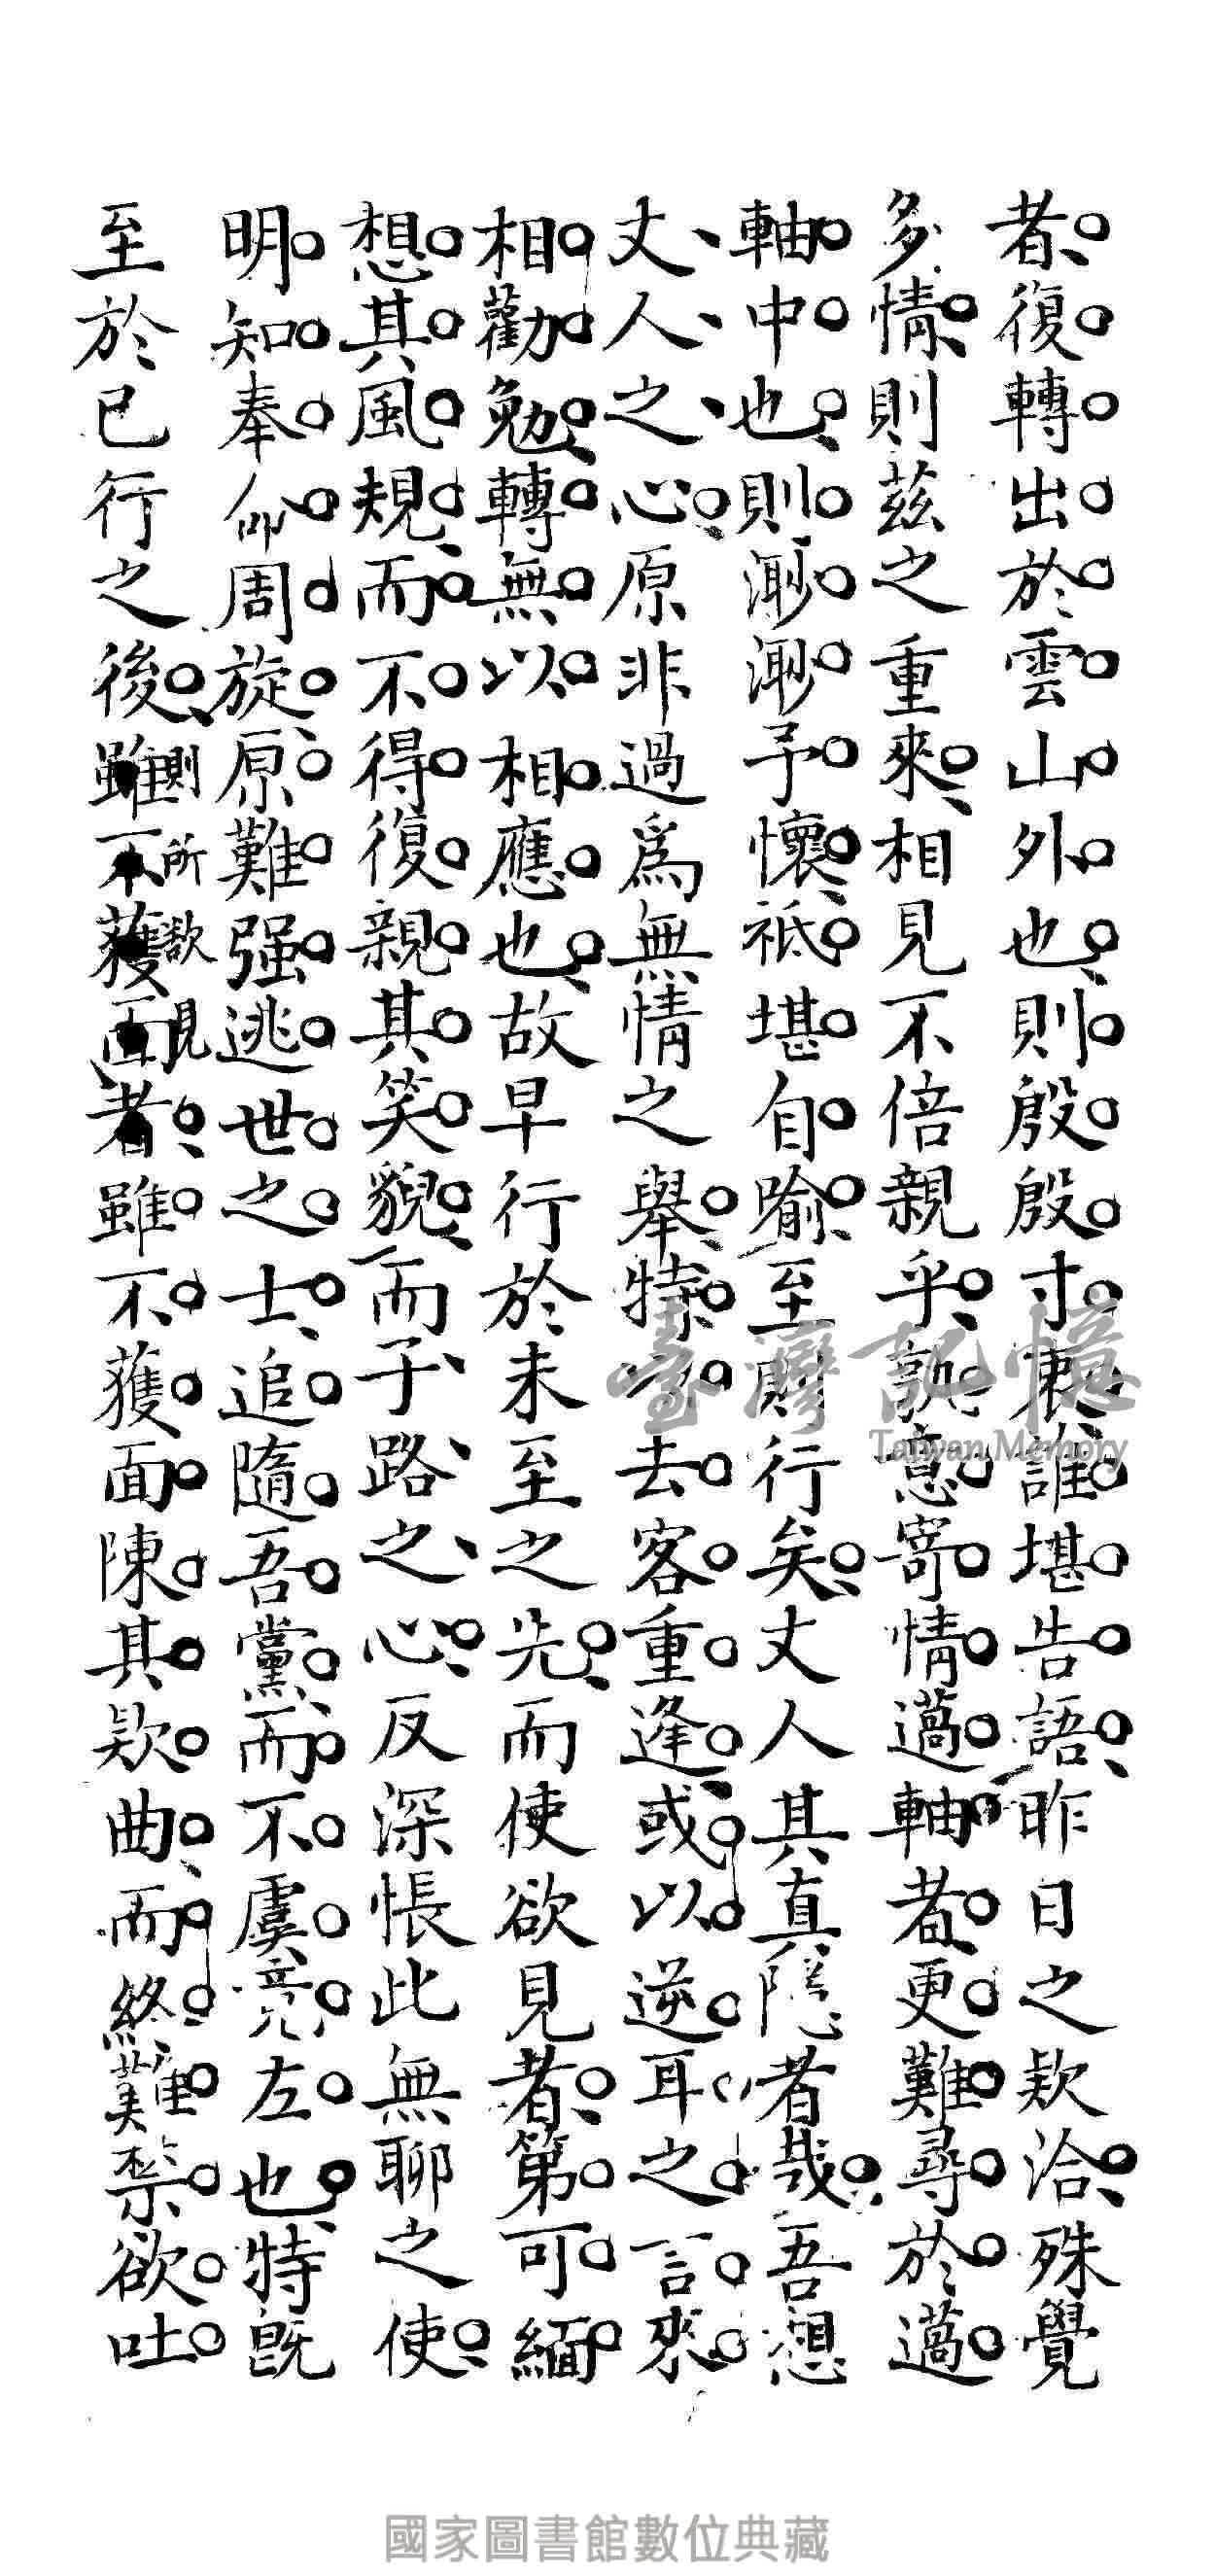 者復轉出於雲山外也則殷殷寸衷誰堪告語昨日之欵洽殊覺
多情則茲之重來相見不倍親乎孰意寄情薖軸者更難尋於薖
軸中也則渺渺予懷祗堪自喻至則行矣丈人其真隱者哉吾想
丈人之心原非過為無情之舉特以去客重逢或以逆耳之言來
相勸勉轉無以相應也故早行於未至之先而使欲見者第可緬
想其風規而不得復親其笑貌而子路之心反深悵此無聊之使
明知奉仰周旋原難强逃世之士追隨吾黨而不虞竟左也特既
至於已行之後則所欲見者雖不獲面陳其欵曲而終難禁欲吐
臺灣記憶
Taiwan Memory
國家圖書館數位典藏